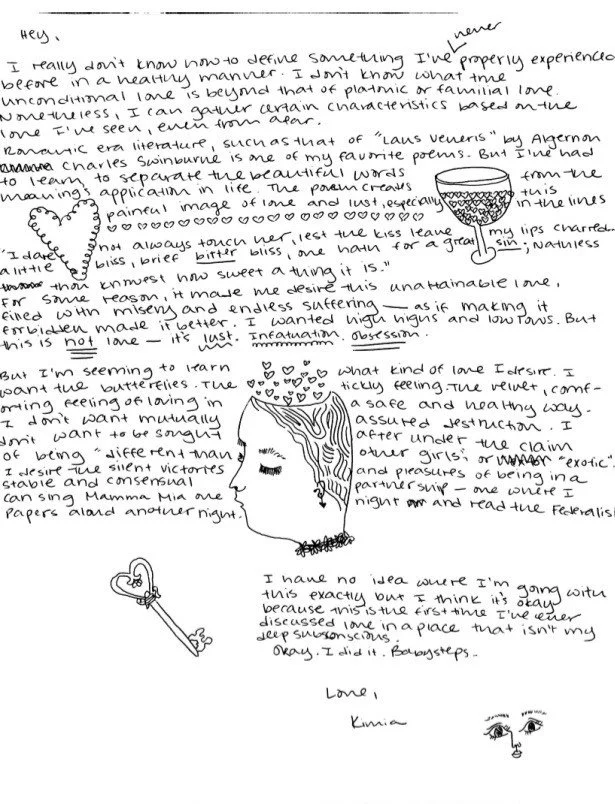 Hey,
never
I really don't know how to define something I've properly experienced
before in a healthy manner. I don't know what true
unconditional love is beyond that of platonic or familial love.
Nonetheless, I can gather certain characteristics based on the
love I've seen, even from afar.
Romantic era literature, such as that of "Laus Veneris" by Algernon
Charles Swinburne is one of my favorite poems. But I've had
to learn to separate the beautiful words from the
meaning's application in life. The poem creates this
painful image of love and lust, especially in the lines
"I dare not always touch her, lest the kiss leave my lips charred.
a little bliss, brief bitter bliss, one hath for a great sin; Nathless
thou knowest how sweet a thing it is."
For some reason, it made me desire this unattainable love,
filled with misery and endless suffering — as if making it
forbidden made it better. I wanted high highs and low lows. But
this is not love — it's lust. Infatuation. Obsession.
But I'm seeming to learn what kind of love I desire. I
want the butterflies. The tickly feeling. The velvet, comf-
orting feeling of loving in a safe and healthy way.
I don't want mutually assured destruction. I
don't want to be sought after under the claim
of being "different than other girls," or "exotic".
I desire the silent victories and pleasures of being in a
stable and consensual partnership — one where I
can sing Mamma Mia one night and read the Federalist
Papers aloud another night.
I have no idea where I'm going with
this exactly but I think it's okay
because this is the first time I've ever
discussed love in a place that isn't my
deep subsonscious.
Okay. I did it. Babysteps.
Love,
Kimia